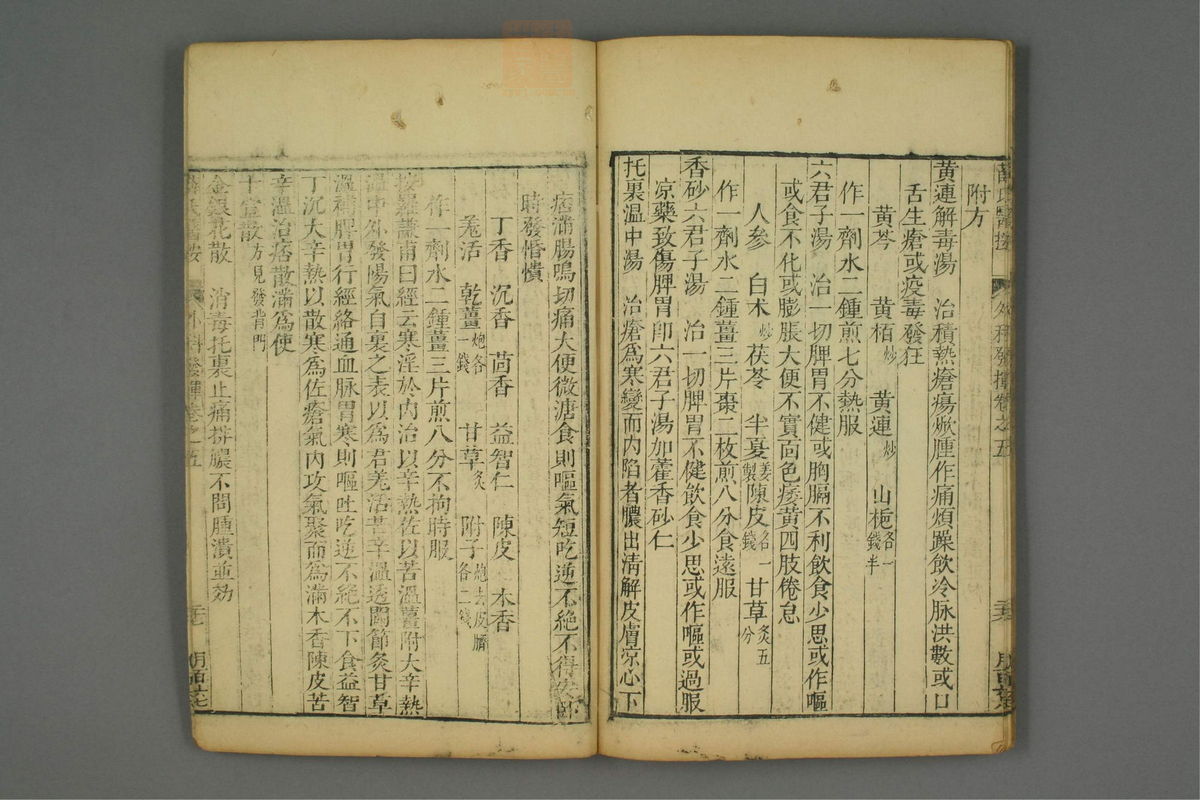 薛氏醫按 外科發揮卷之五
附方
黃連解毒湯 治積熱瘡瘍焮腫作痛煩躁飲冷脉洪數或口
舌生瘡或疫毒發狂
黃芩 黃栢炒 黃連炒 山梔各一錢半
作一劑水二鍾煎七分熱服
六君子湯 治一切脾胃不健或胸膈不利飲食少思或作嘔
或食不化或膨脹大便不實面色痿黃四肢倦怠
人參 白朮炒 茯苓 半夏姜製 陳皮各一錢 甘草炙五分
作一劑水二鍾薑三片棗二枚煎八分食遠服
香砂六君子湯 治一切脾胃不健飲食少思或作嘔或過服
凉藥致傷脾胃卽六君子湯加藿香砂仁
托裏溫中湯 治瘡爲寒變而內陷者膿出清解皮膚凉心下
痞滿腸鳴切痛大便微溏食則嘔氣短吃逆不絶不得安臥
時發惛憒
丁香 沉香 茴香 益智仁 陳皮 木香
羗活 乾薑炮各一錢 甘草炙 附子炮去皮臍各二錢
作一劑水二鍾薑三片煎八分不拘時服
按羅謙甫曰經云寒淫於內治以辛熱佐以苦溫薑附大辛熱
溫中外發陽氣自裏之表以爲君羌活苦辛溫透關節炙甘草
溫補脾胃行經絡通血脉胃寒則嘔吐吃逆不絶不下食益智
丁沉大辛熱以散寒爲佐瘡氣內攻氣聚而爲滿木香陳皮苦
辛溫治痞散滿爲使
十宣散方見發背門
金銀花散 治毒托裏止痛排膿不問腫潰並効
薛氏醫按 外科發揮卷之五